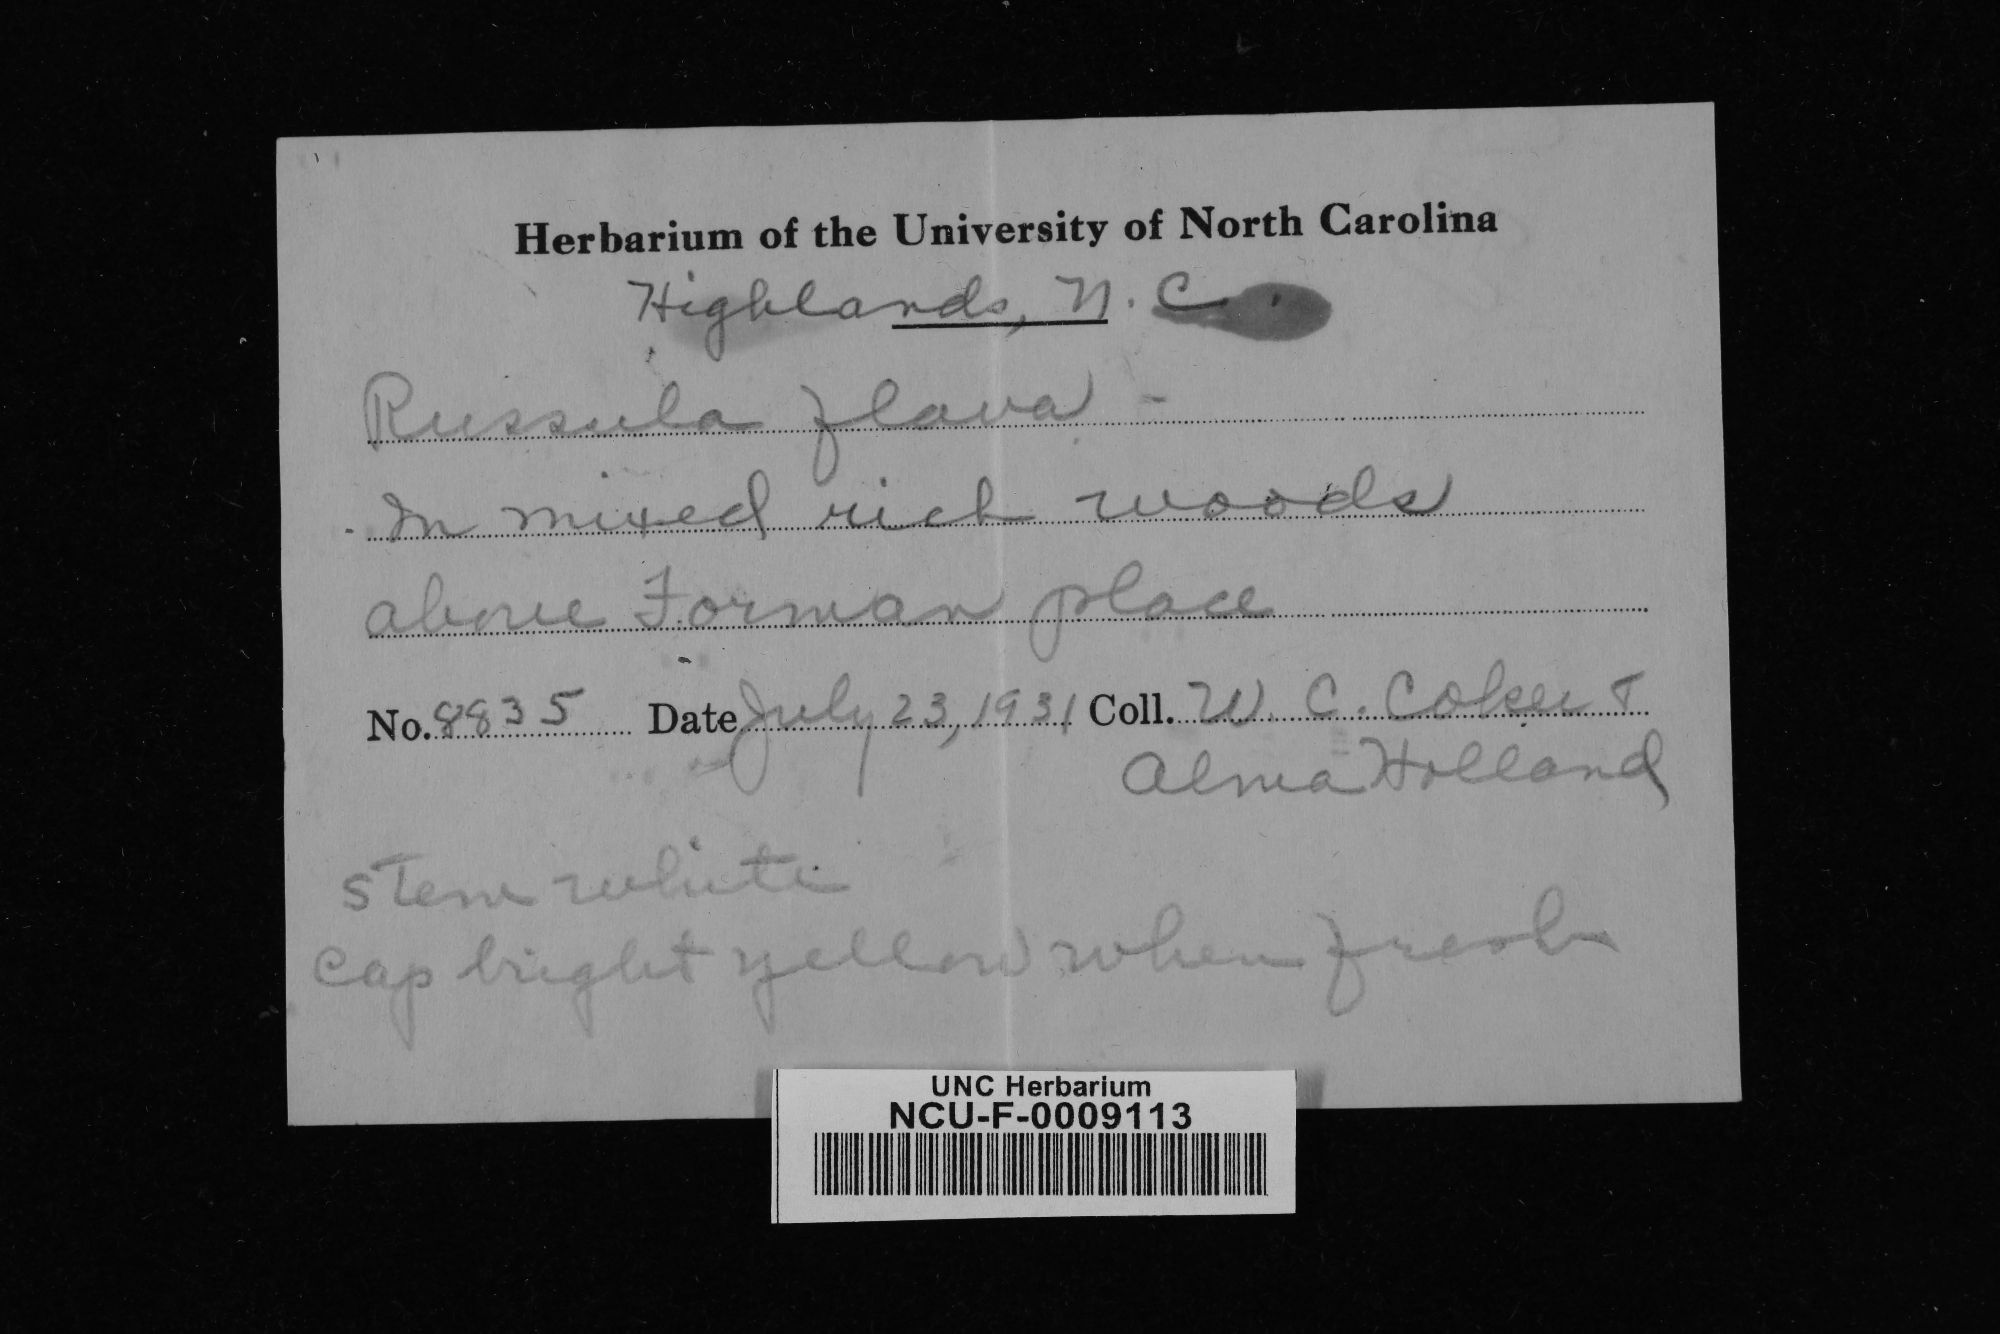 Herbarium of the University of North Carolina
Highlands, N. C.
Russula flava -
In mixed rich woods
above Forman place
No. 8835 Date July 23, 1931 Coll. W. C. Coker +
Alma Holland
stem white
cap bright yellow when fresh
UNC Herbarium
NCU-F-0009113